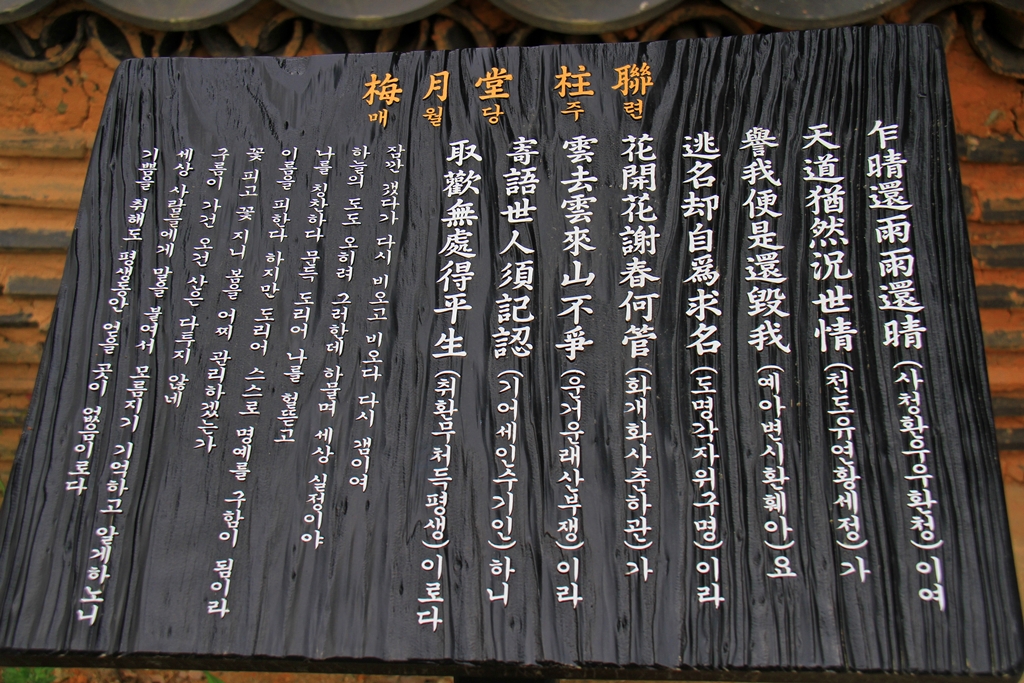 梅月堂 柱聯
매월당 주련
乍晴還雨雨還晴(사청황우우환청)이여
天道猶然況世情(천도유연황세정)가
譽我便是還毀我(예아변시환훼아)요
逃名却自爲求名(도명각자위구명)이라
花開花謝春何管(화개화사춘하관)가
雲去雲來山不爭(운거운래산부쟁)이라
寄語世人須記認(기어세인수기인)하니
取歡無處得平生(취환무처득평생)이로다
잠깐 갰다가 다시 비오고 비오다 다시 갬이여
하늘의 도도 오히려 그러한데 하물며 세상 실정이야
나를 칭찬하다 문득 도리어 나를 헐뜯고
이름을 피한다 하지만 도리어 스스로 명예를 구함이 됨이라
꽃 피고 꽃 지니 봄을 어찌 관리하겠는가
구름이 가건 오건 산은 다투지 않네
세상 사람들에게 말을 붙여서 모름지기 기억하고 알게하노니
기쁨을 취해도 평생동안 얻을 곳이 없음이로다